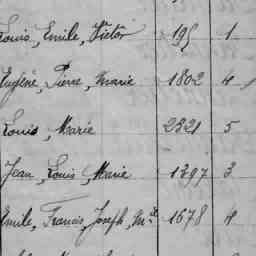 Louis, Emile, Victor 195 1
Eugène, Pierre, Marie 1802 4
Louis, Marie 2321 5
Jean, Louis, Marie 1397 3
Emile, Francis, Joseph, Mie 1678 4